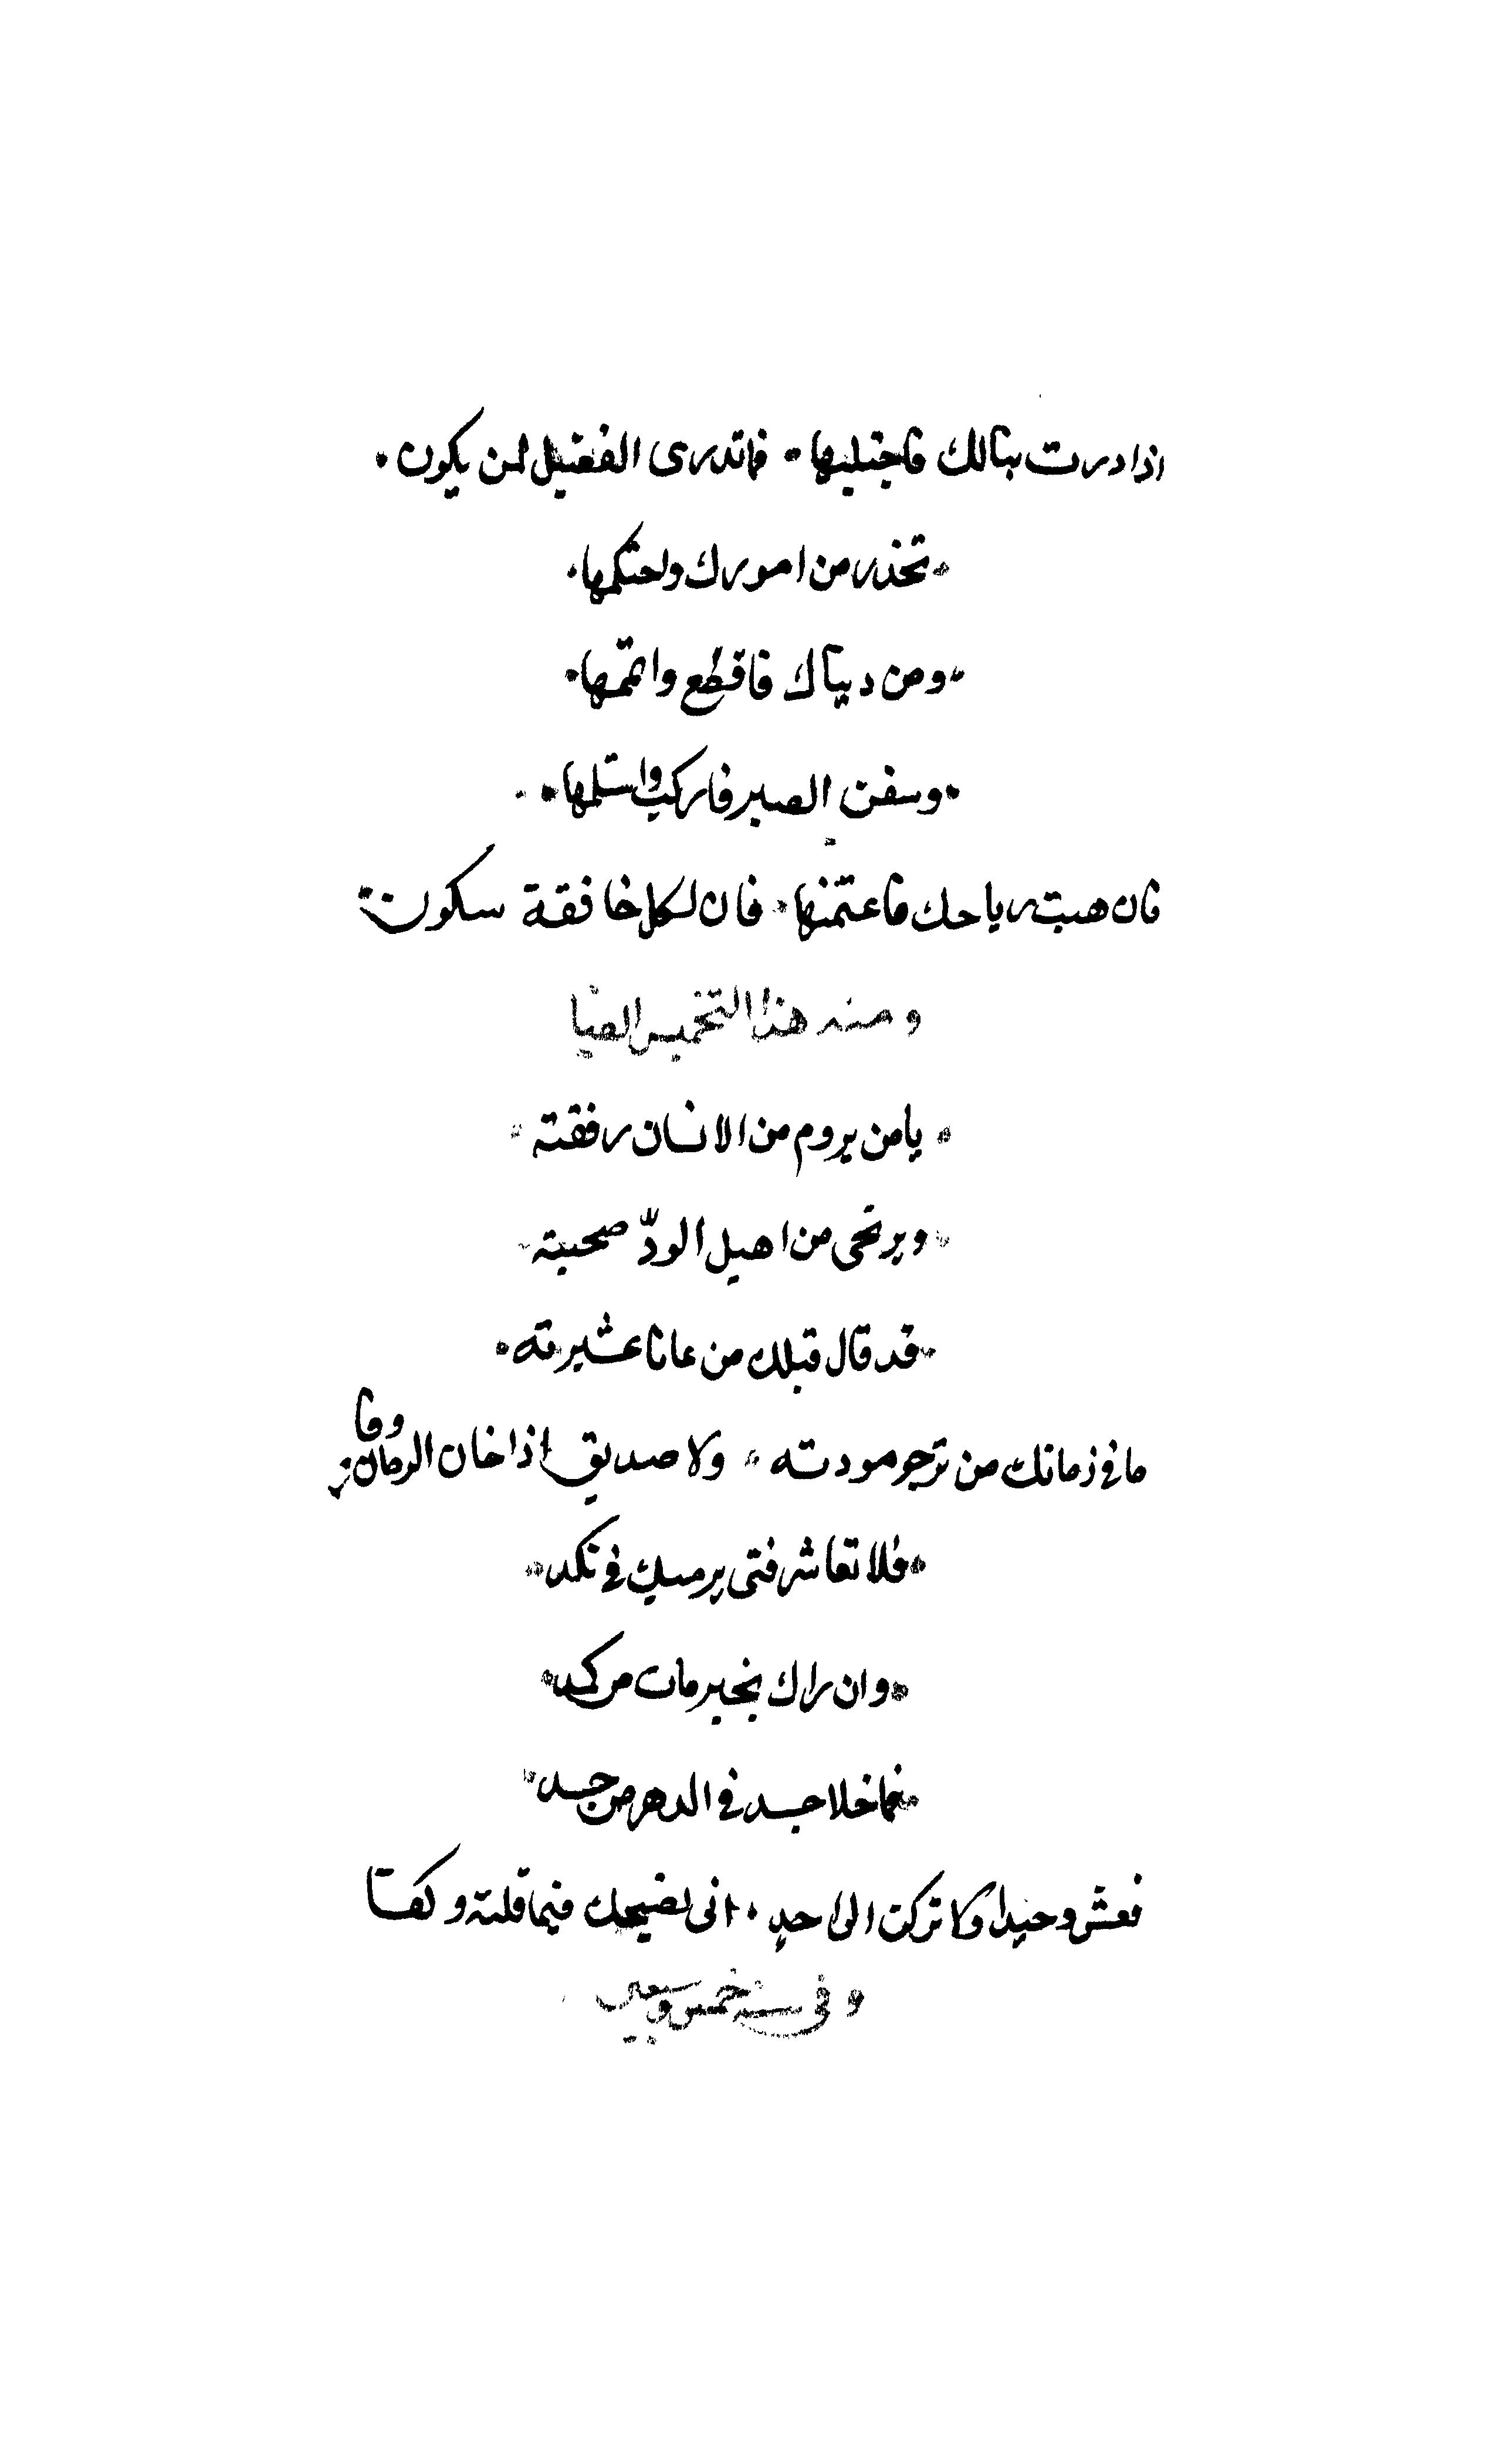 اذا درت بنالك فاجتليها • فما تدرى الفضيل لمن يكون •
• تحذر من امورك واحتكمها •
• ومن دنياك فاقطع واتهمها •
• وسفن الصبر فاركب واستلمها •
فان هبت رياحك فاعتمنها • فان لكل خافقة سكون
ومنه هذا التخميس ايضا
• يا من يروم من الانسان رفقته •
• ويرتجى من اهيل الودّ صحبته •
• قد قال قبلك من عانا عشيرته •
ما فى زمانك من ترجو مودته • ولا صديق اذا خان الزمان وفا
• فلا تعاشر فتى يرميك فى نكد •
• وان راك بخير مات من كمد •
• فما خلا جسد فى الدهر من حسد •
فعش وحيدا ولا تركن الى احدٍ • انى نصيحك فيما قلته وكفا
وفى سنة خمس وسبعين